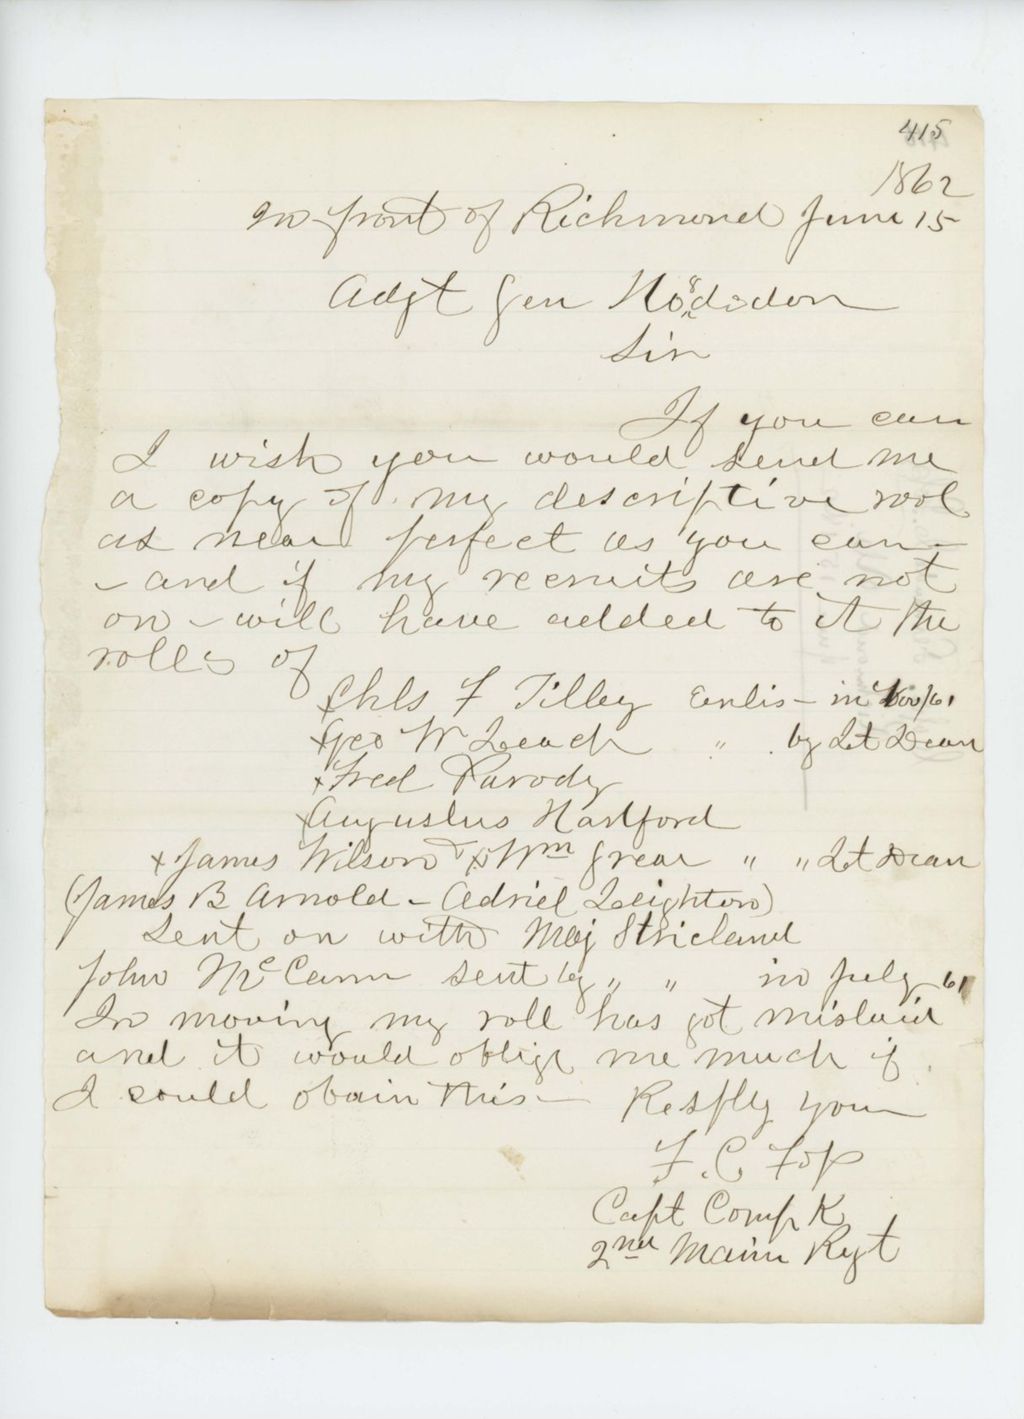 415
1862
In front of Richmond June 15
Adgt Gen Hodsdon
Sir
If you can
I wish you would send me
a copy of my descriptive rool
as near perfect as you can -
- and if my recruits are not
on - will have added to it the
rolls of
x Chls F Tilley Enlis - in Nov/61
x Geo W Leach " by Lt Dean
x Fred Parody
x Augustus Hartford
x James Wilson x Wm Grear " " Lt Dean
(James B Arnold - Adriel Leighton)
Sent on with Maj Stricland
John McCann sent by " " in July 61
In moving my roll has got mislaid
and it would oblige me much if
I could obain this -
Resptly your
F. C. Fos
Capt Comp K
2nd Maine Rgt